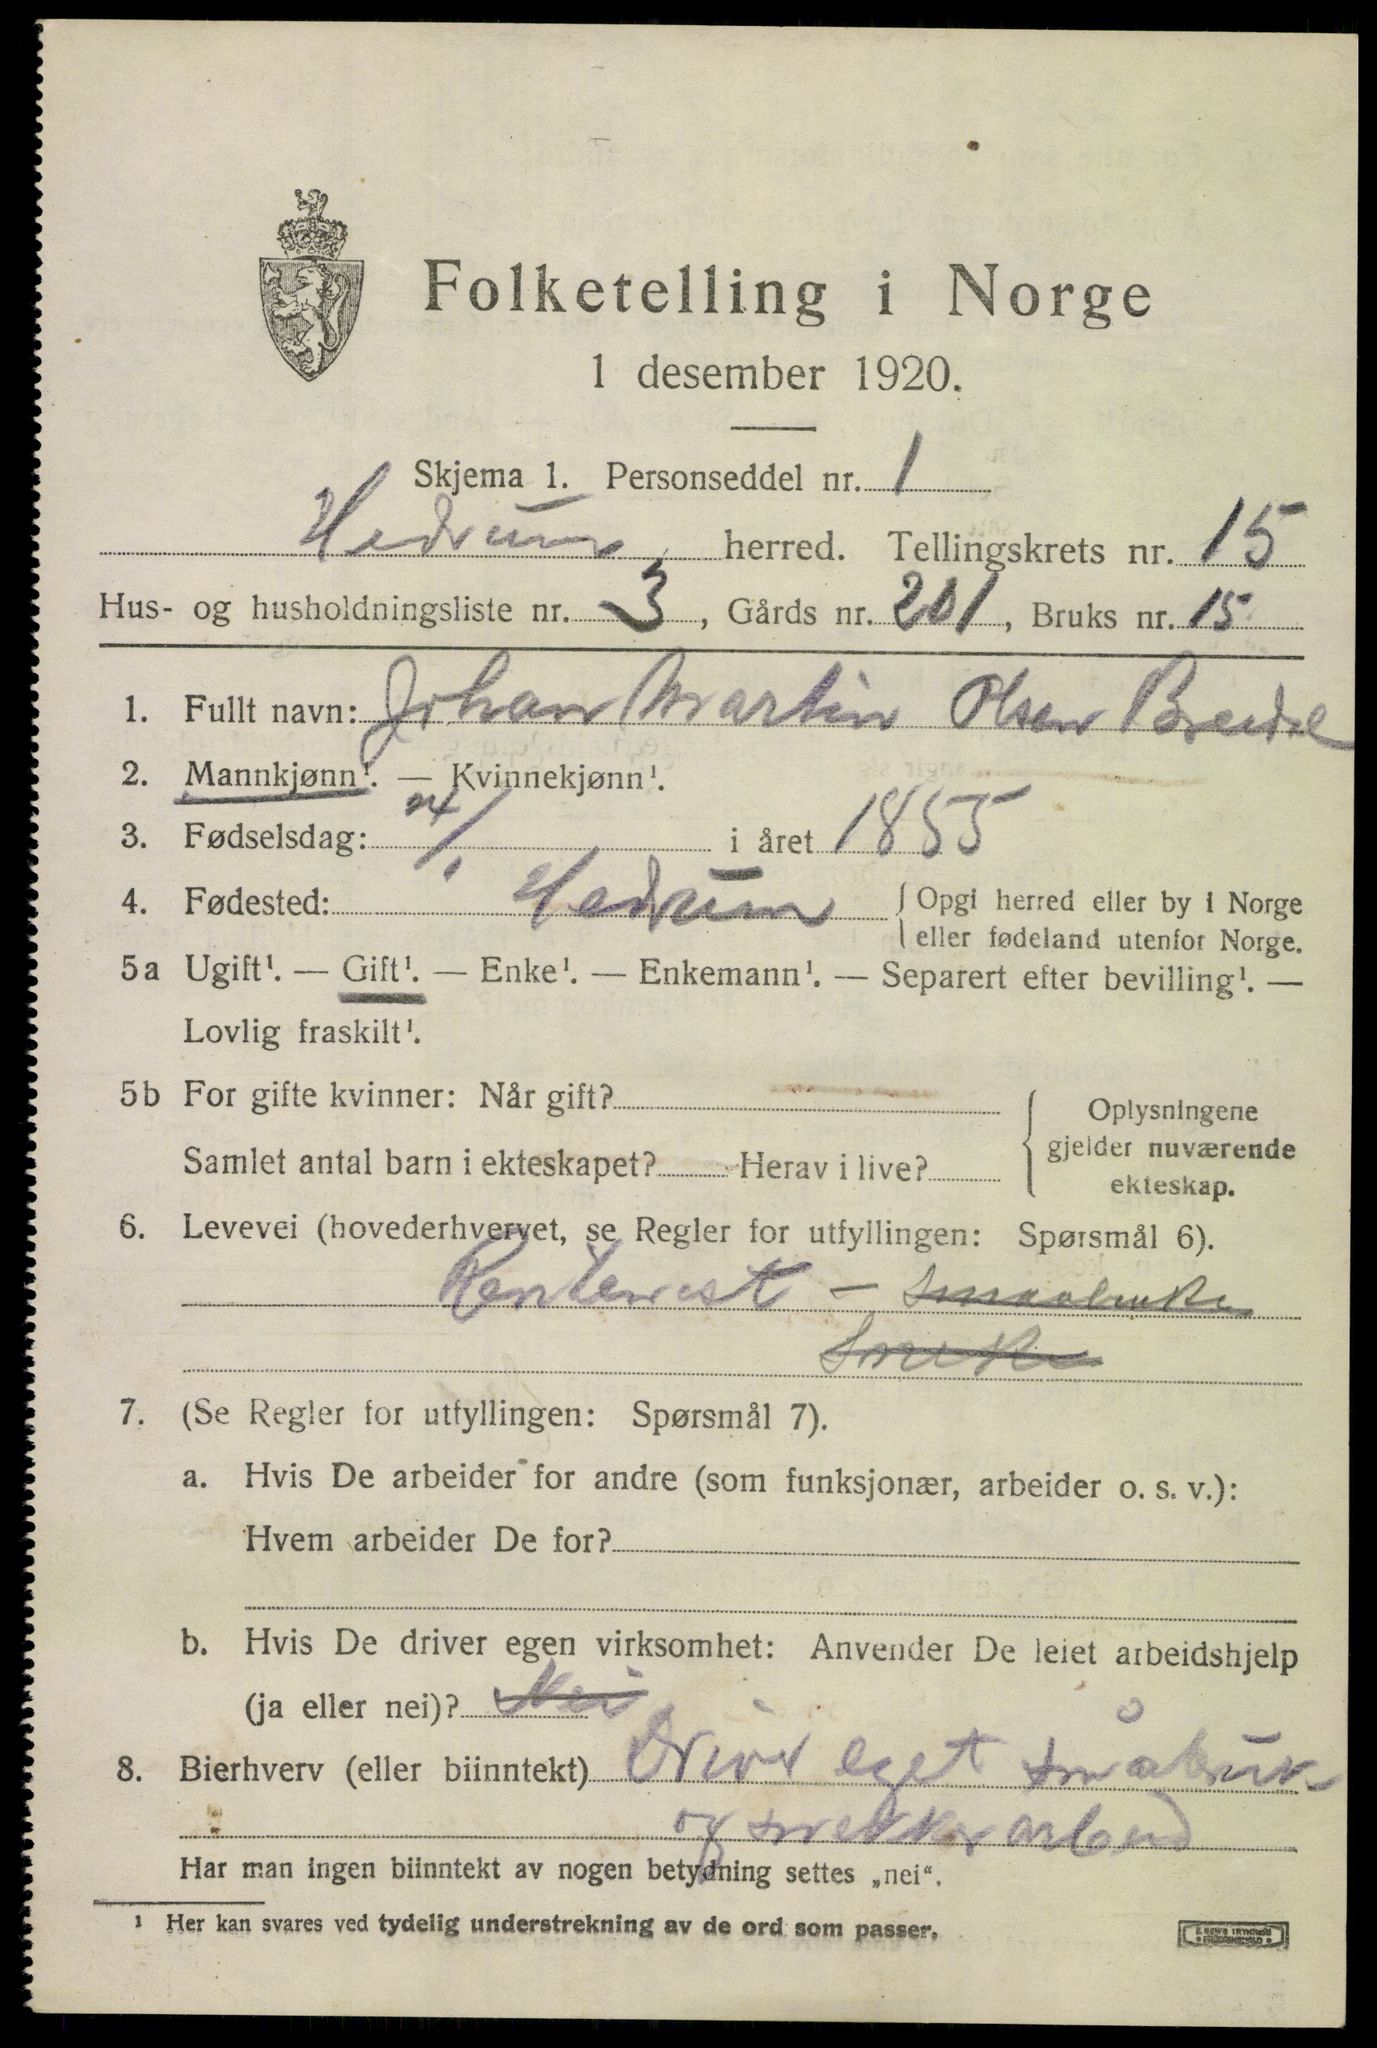 Folketelling i Norge
1 desember 1920.
Skjema 1. Personseddel nr. 1
Hedrum herred. Tellingskrets nr. 15
Hus- og husholdningsliste nr. 3, Gårds nr. 201, Bruks nr. 15
1. Fullt navn: Johan Martin Olsen
2. Mannkjønn¹. — Kvinnekjønn¹.
3. Fødselsdag: 24/1 i året 1855
4. Fødested: Hedrum { Opgi herred eller by i Norge
eller fødeland utenfor Norge.
5a Ugift¹. — Gift¹. — Enke¹. — Enkemann¹. — Separert efter bevilling¹. —
Lovlig fraskilt¹.
5b For gifte kvinner: Når gift?
Samlet antal barn i ekteskapet? Herav i live?
Oplysningene
gjelder nuværende
ekteskap.
6. Levevei (hovederhvervet, se Regler for utfyllingen: Spørsmål 6).
Rentenist —
7. (Se Regler for utfyllingen: Spørsmål 7).
a. Hvis De arbeider for andre (som funksjonær, arbeider o. s. v.):
Hvem arbeider De for?
b. Hvis De driver egen virksomhet: Anvender De leiet arbeidshjelp
(ja eller nei)? Nei
8. Bierhverv (eller biinntekt) Driver eget småbruk
og snekkerarbeid
Har man ingen biinntekt av nogen betydning settes „nei“.
¹ Her kan svares ved tydelig understrekning av de ord som passer.